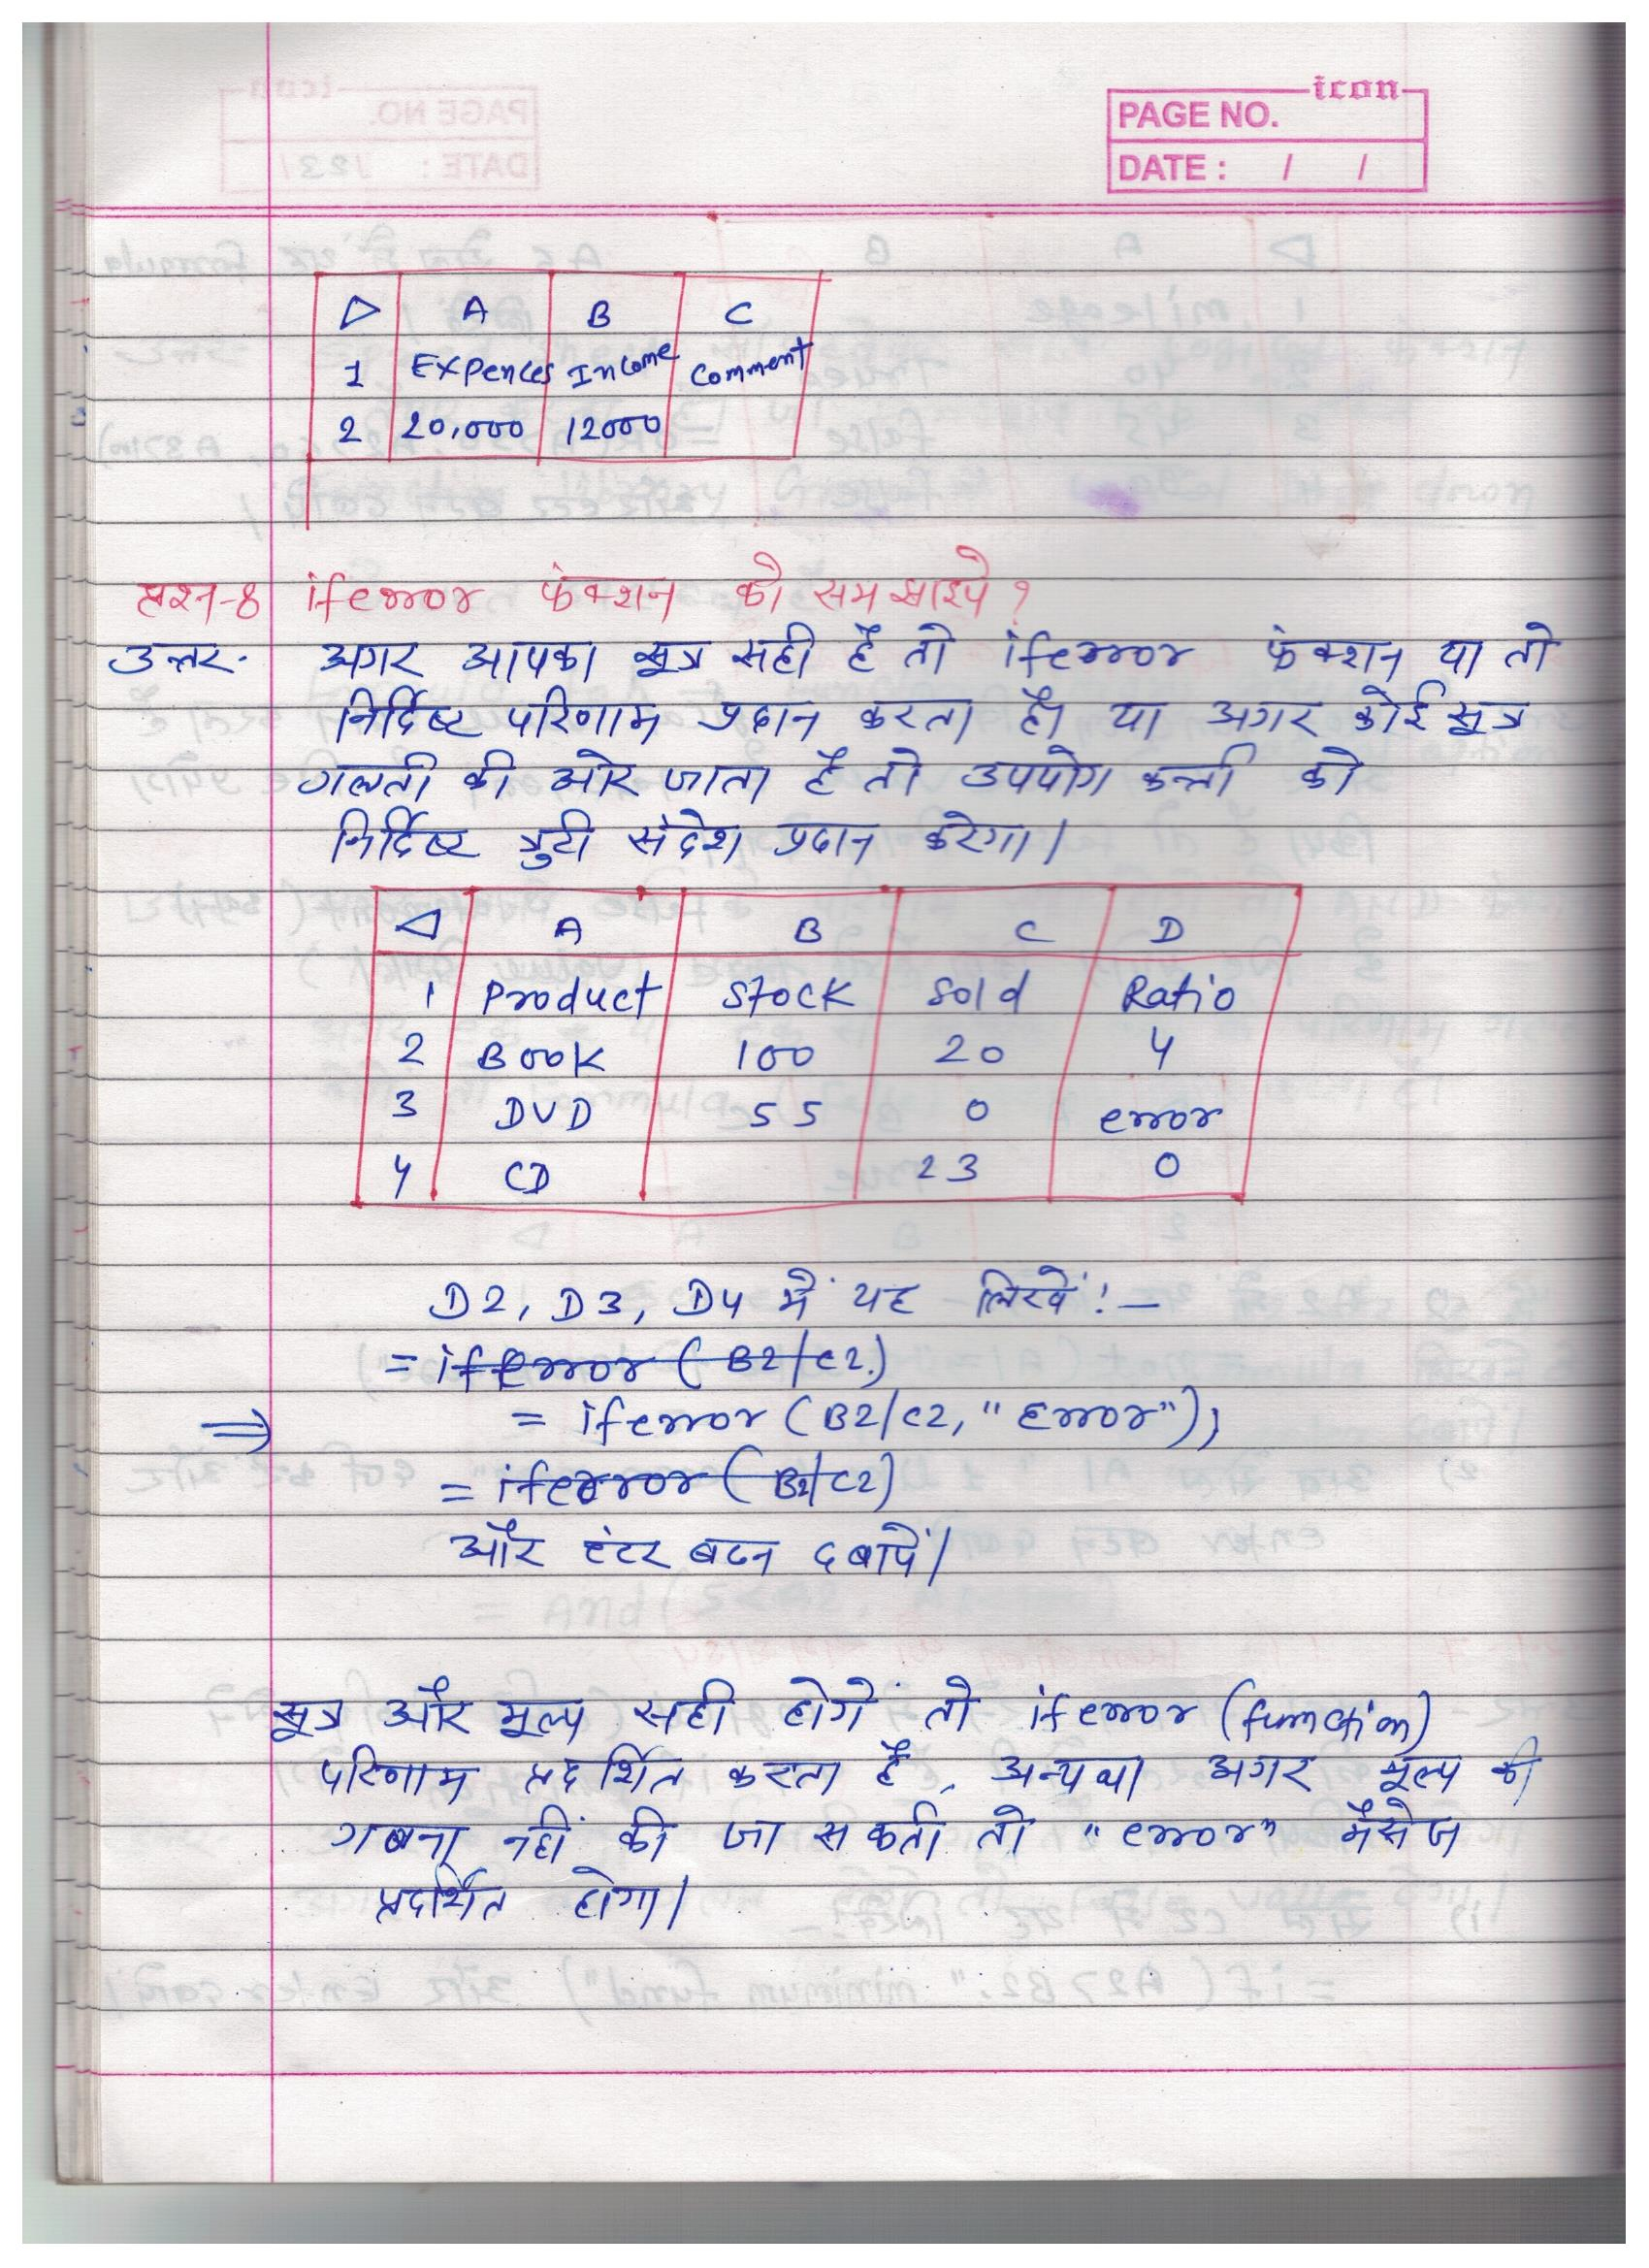 icon
PAGE NO.
DATE : / /
▷ A B C
1 Expences Income Comment
2 20,000 12000
प्रश्न-8 iferror फंक्शन को समझाइये ?
उत्तर. अगर आपका सूत्र सही है तो iferror फंक्शन या तो
निर्दिष्ट परिणाम प्रदान करता है। या अगर कोई सूत्र
गलती की ओर जाता है तो उपयोग कर्त्ता को
निर्दिष्ट त्रुटी संदेश प्रदान करेगा।
◁ A B C D
1 Product Stock Sold Ratio
2 Book 100 20 4
3 DVD 55 0 error
4 CD 23 0
D2, D3, D4 में यह लिखें :-
= ifError ( B2/C2.)
⇒ = iferror (B2/C2, "Error");
= iferror ( B2/C2)
और एंटर बटन दबायें।
सूत्र और मूल्य सही होगें तो iferror (function)
परिणाम प्रदर्शित करता है, अन्यथा अगर मूल्य की
गणना नहीं की जा सकती तो "error" मैसेज
प्रदर्शित होगा।